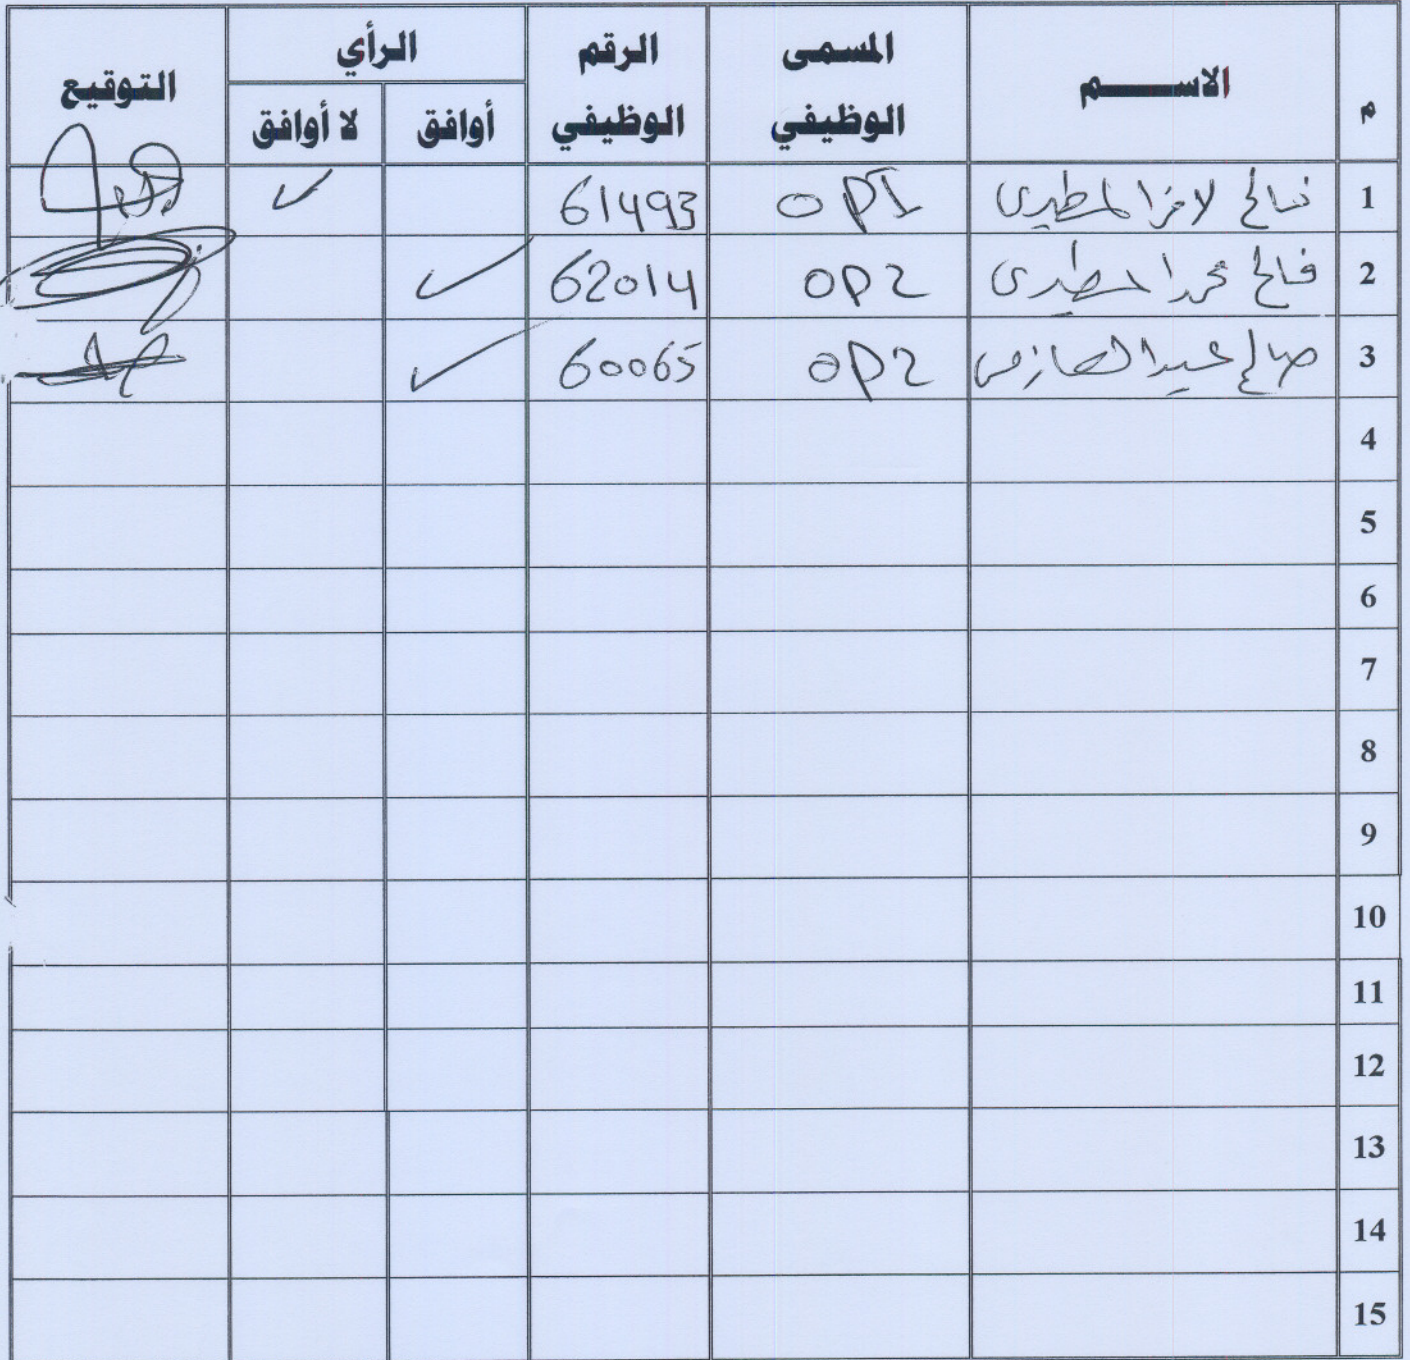 م الاســـــم المسمى الوظيفي الرقم الوظيفي الرأي التوقيع
أوافق لا أوافق
1 فالح لافي المطيري OP1 61493 ✓
2 فالح محمد المطيري OP2 62014 ✓
3 صالح عبيد العازمي OP2 60065 ✓
4
5
6
7
8
9
10
11
12
13
14
15